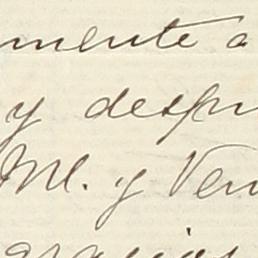 mente a
y despu
M. y Ven
gracias